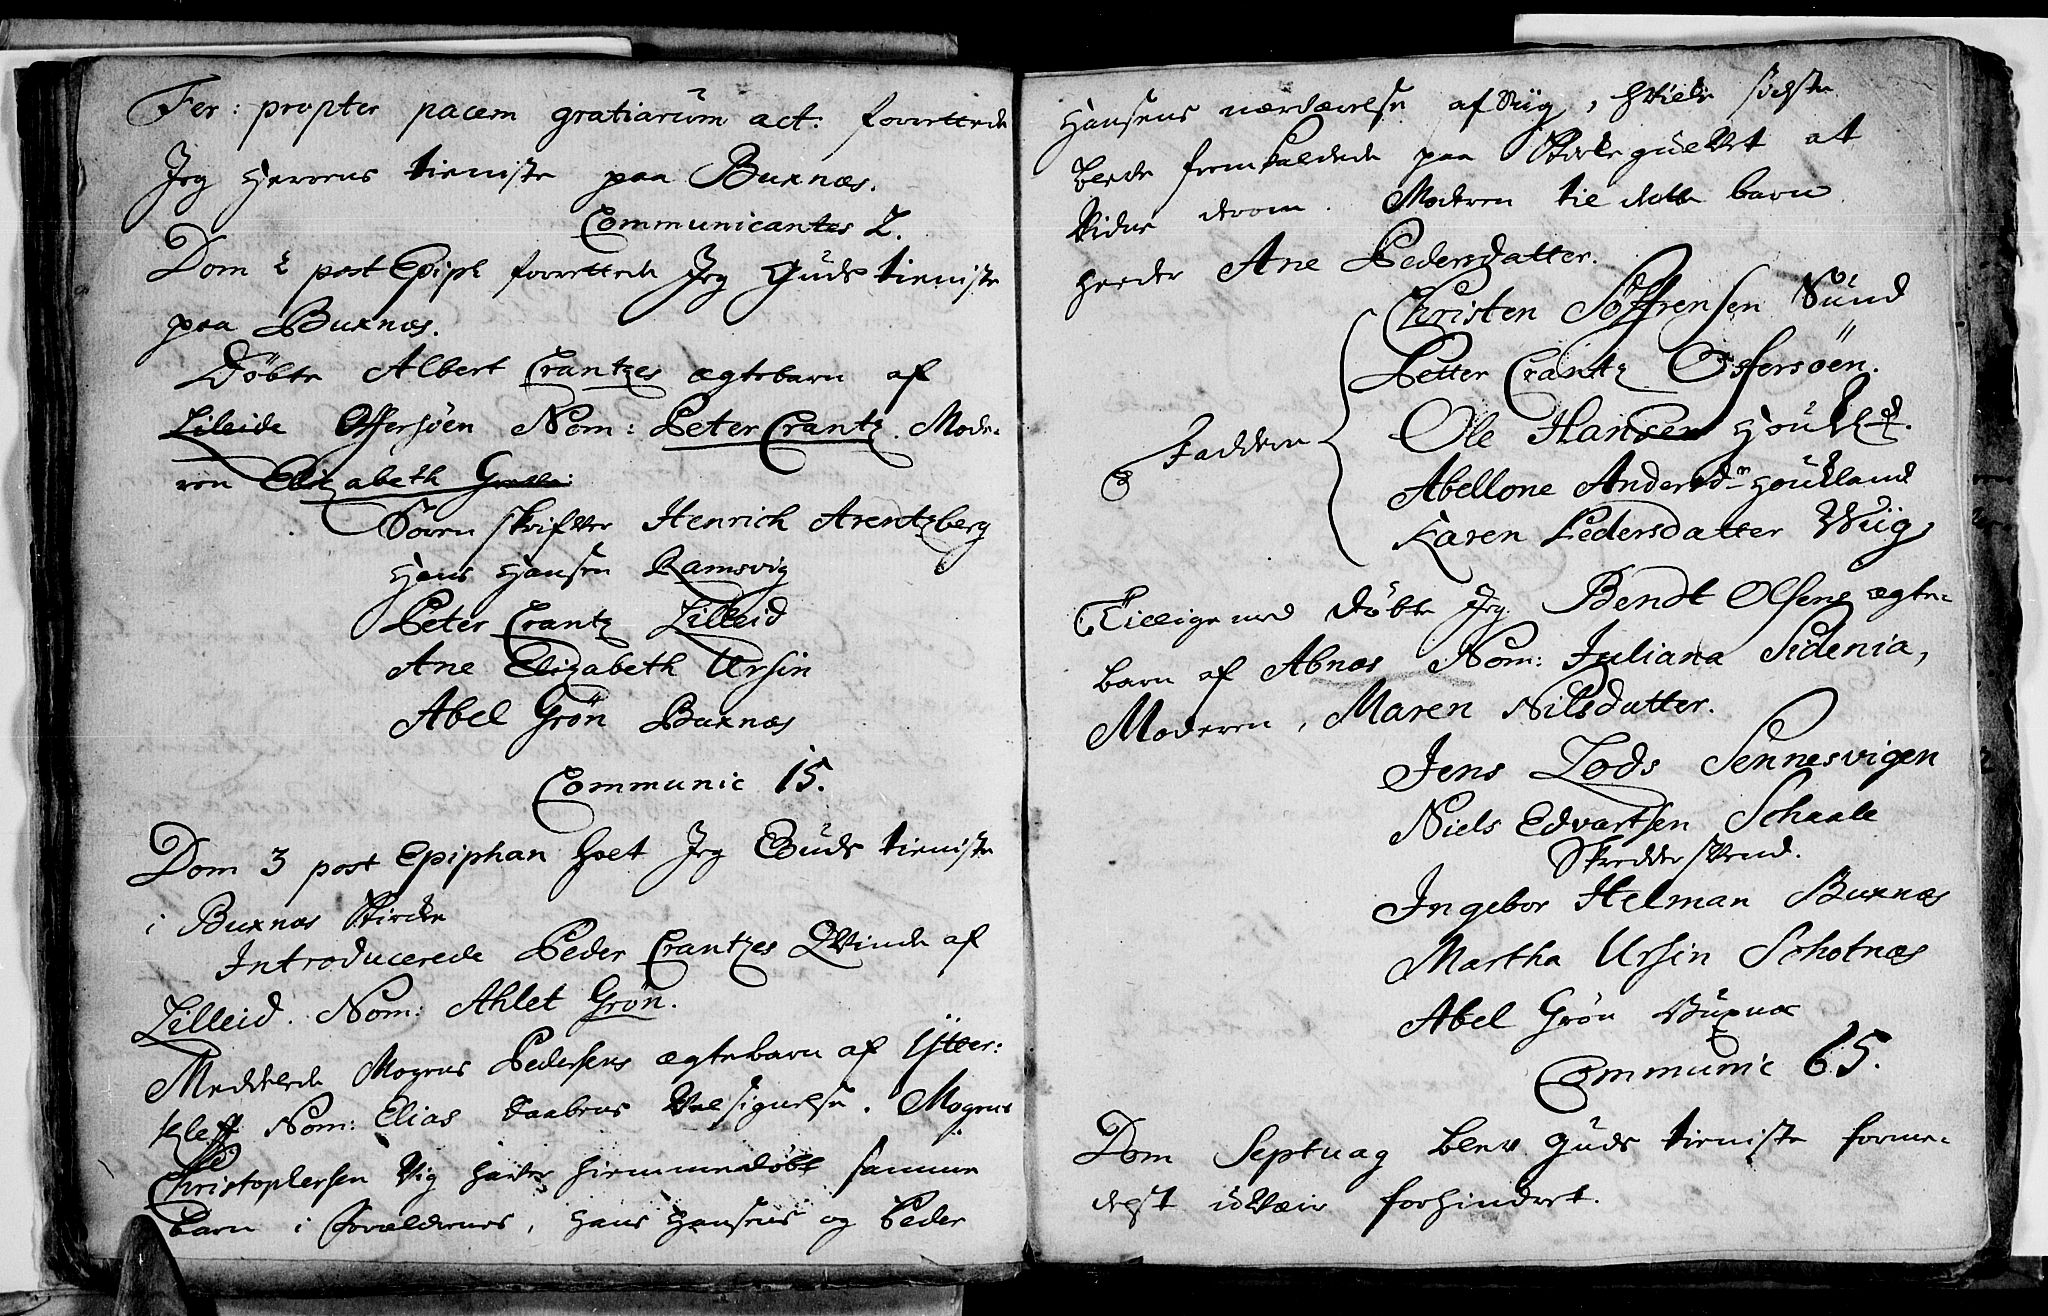 Fer: propter pacem gratiarum act: forrettede
Jeg Herrens tieniste paa Buxnæs.
Communicantes 2.
Dom 2 post Epiph forrettede Jeg Guds tieniste
paa Buxnæs.
Døbte Albert Crantzes ægtebarn af
Lileide Ossersöen Nom: Peter Crantz. Mode-
ren Elizabeth
Soren skrifver Henrich Arentzberg
Hans Hansen Ramsvig
Peter Crantz Lilleid
Ane Elizabeth Ursin
Abel Grön Buxnæs
Communic 15.
Dom 3 post Epiphan holt Jeg Guds tieniste
i Buxnæs Kircke
Introducerede Peder Crantzes Qvinde af
Lilleid. Nom: Ahlet Grön.
Meddelede Mogens Pedersens ægtebarn af Ytter:
Kleff Nom: Elias Daabens Velsignelse. Mogens
Christophersen Vig hafde hiemmedøbt samme
barn i Forældernes, Hans Hansens og Peder
Hansens nærværelse af Wiig, hvilke sidste
blede fremkaldede paa Kirkegulvet at
vidne derom. Moderen til dette barn
heeder Ane Pedersdatter.
Christen Söffrensen Sund
Petter Crantz Ossersöen.
Faddere Ole Hansen Houkld.
Abellone Andersdr Houkland
Karen Pedersdatter Wiig
Tillige med døbte Jeg Bendt Olsens ægte-
barn af Abnæs Nom: Juliana Sidenia,
Moderen, Maren Nilsdatter.
Jens Lods Sennesvigen
Niels Edvartsen Schaale
Skredder svend.
Ingebor Helman Buxnæs
Martha Ursin Schotnæs
Abel Grön Buxnæs
Communic 65.
Dom Septuag blev Guds tieniste forme-
delst uvæir forhindret.